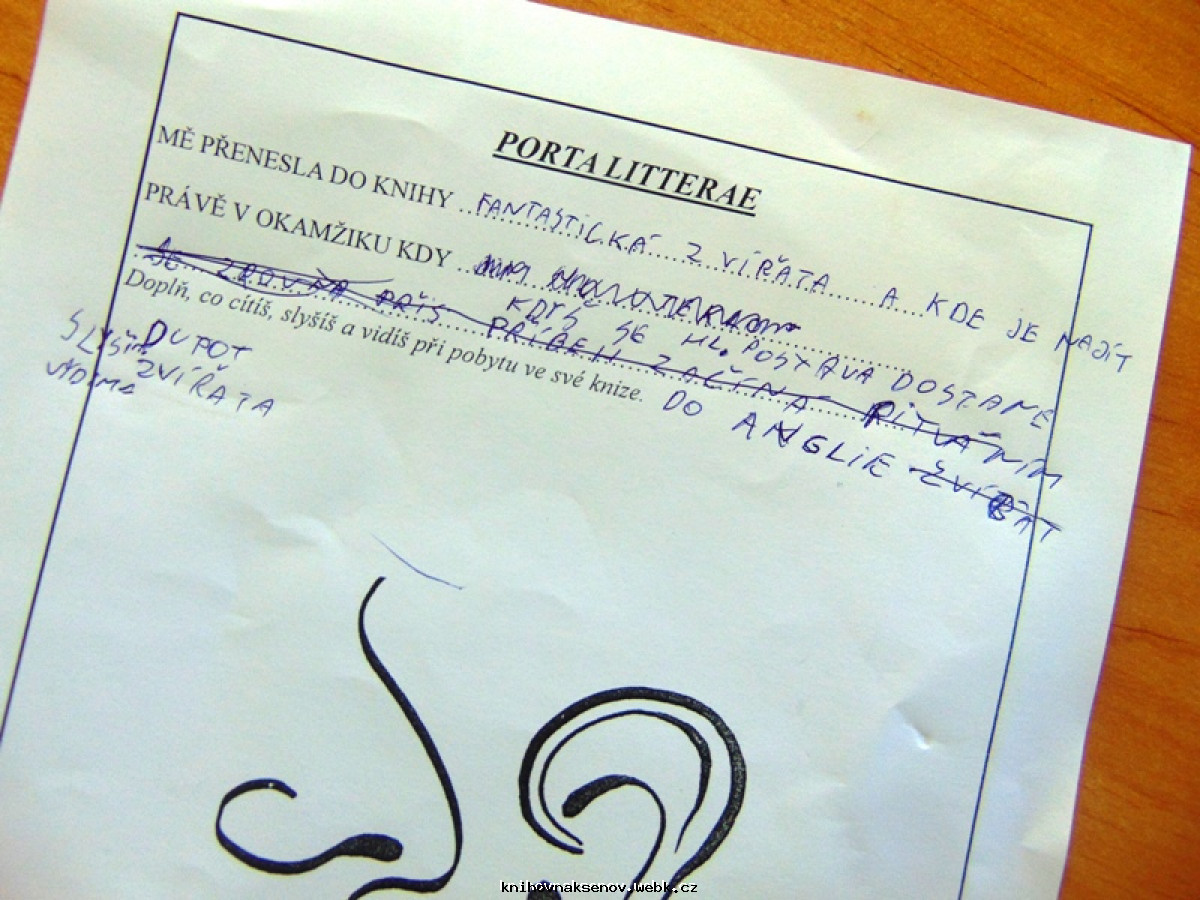 PORTA LITTERAE
MĚ PŘENESLA DO KNIHY FANTASTICKÁ ZVÍŘATA A KDE JE NAJÍT
PRÁVĚ V OKAMŽIKU KDY
KDYŠ SE HL. POSTAVA DOSTANE
PŘÍBĚH ZAČÍNÁ PITVÁNÍM
Doplň, co cítíš, slyšíš a vidíš při pobytu ve své knize.
DO ANGLIE ZVÍŘAT
SLYŠÍM DUPOT
ZVÍŘATA
knihovnaksenov.webk.cz